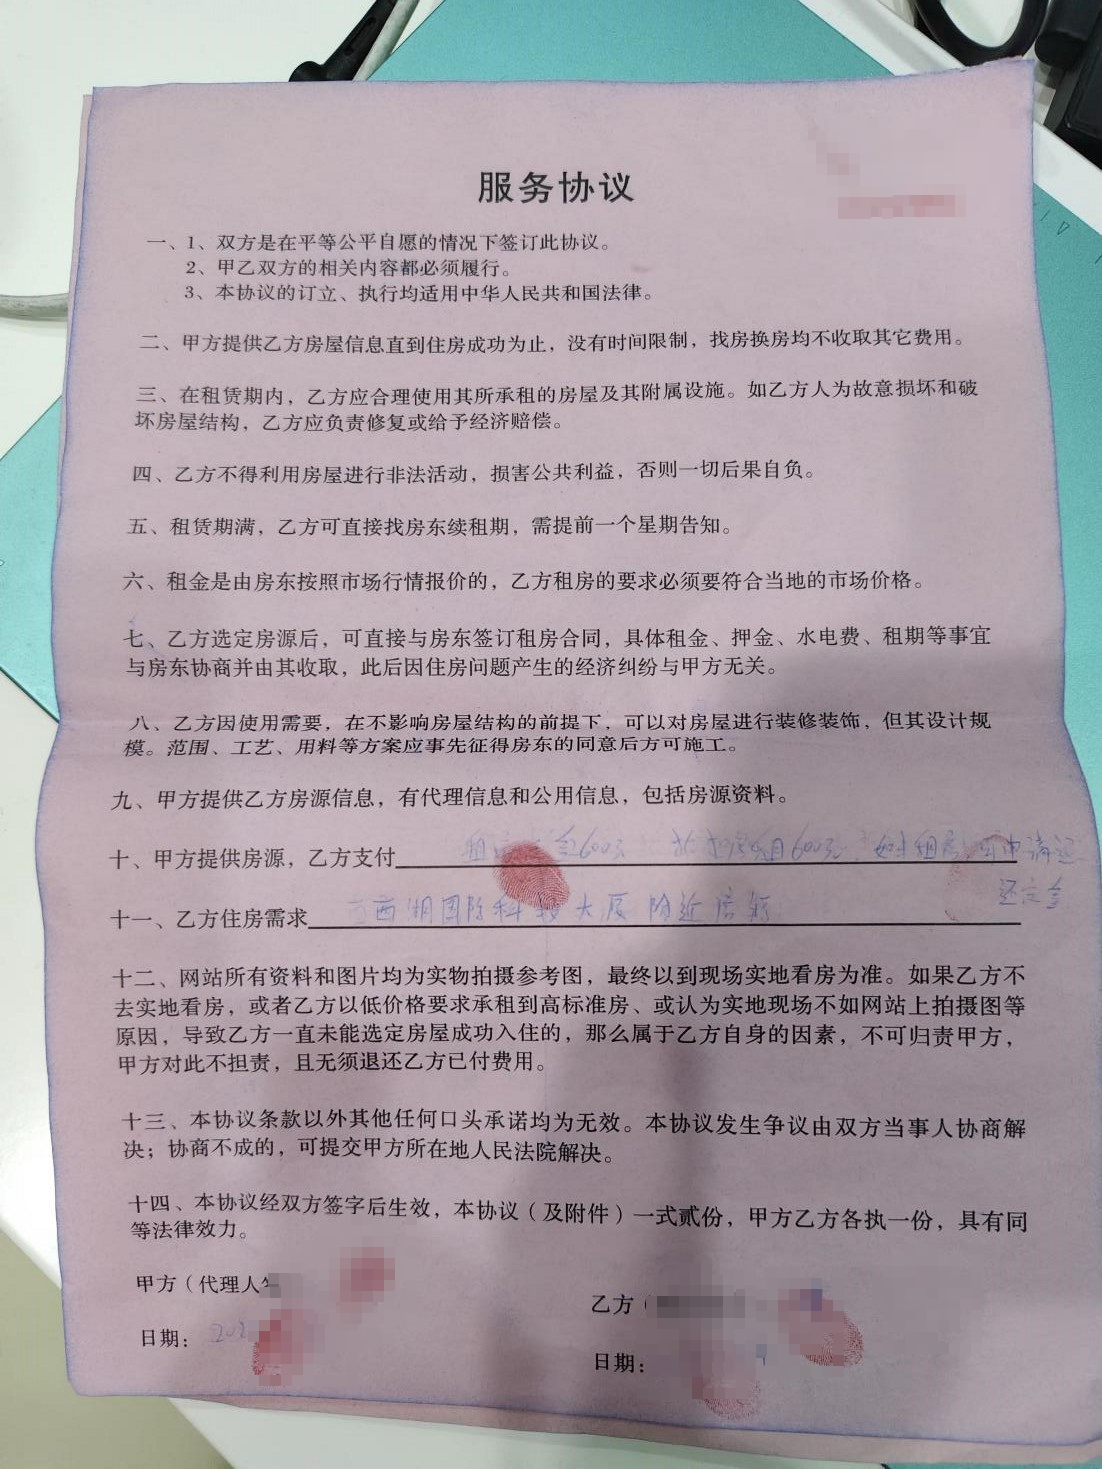 服务协议
一、1、双方是在平等公平自愿的情况下签订此协议。
2、甲乙双方的相关内容都必须履行。
3、本协议的订立、执行均适用中华人民共和国法律。
二、甲方提供乙方房屋信息直到住房成功为止，没有时间限制，找房换房均不收取其它费用。
三、在租赁期内，乙方应合理使用其所承租的房屋及其附属设施。如乙方人为故意损坏和破
坏房屋结构，乙方应负责修复或给予经济赔偿。
四、乙方不得利用房屋进行非法活动，损害公共利益，否则一切后果自负。
五、租赁期满，乙方可直接找房东续租期，需提前一个星期告知。
六、租金是由房东按照市场行情报价的，乙方租房的要求必须要符合当地的市场价格。
七、乙方选定房源后，可直接与房东签订租房合同，具体租金、押金、水电费、租期等事宜
与房东协商并由其收取，此后因住房问题产生的经济纠纷与甲方无关。
八、乙方因使用需要，在不影响房屋结构的前提下，可以对房屋进行装修装饰，但其设计规
模。范围、工艺、用料等方案应事先征得房东的同意后方可施工。
九、甲方提供乙方房源信息，有代理信息和公用信息，包括房源资料。
十、甲方提供房源，乙方支付 金600元 房 月600元 租房 可申请退
还定金
十一、乙方住房需求 西湖国际科技大厦附近房
十二、网站所有资料和图片均为实物拍摄参考图，最终以到现场实地看房为准。如果乙方不
去实地看房，或者乙方以低价格要求承租到高标准房、或认为实地现场不如网站上拍摄图等
原因，导致乙方一直未能选定房屋成功入住的，那么属于乙方自身的因素，不可归责甲方，
甲方对此不担责，且无须退还乙方已付费用。
十三、本协议条款以外其他任何口头承诺均为无效。本协议发生争议由双方当事人协商解
决；协商不成的，可提交甲方所在地人民法院解决。
十四、本协议经双方签字后生效，本协议（及附件）一式贰份，甲方乙方各执一份，具有同
等法律效力。
甲方（代理人
乙方（
日期：202
日期：